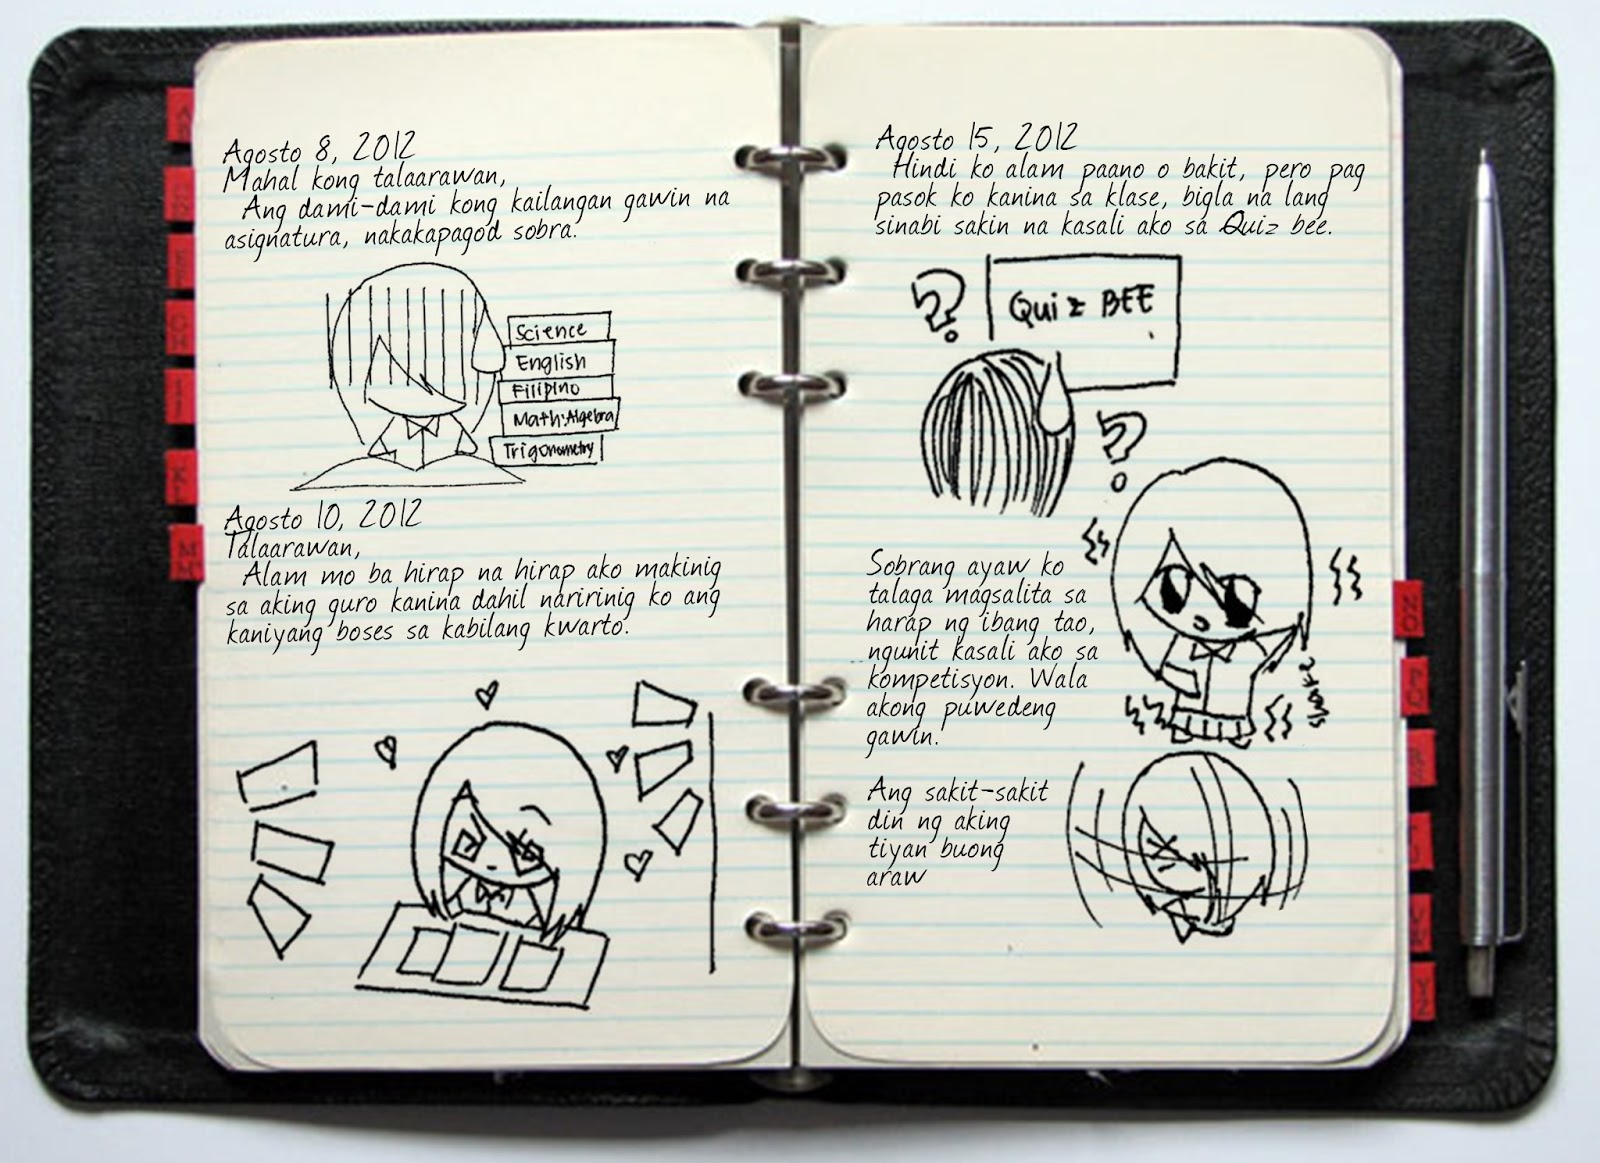 Agosto 8, 2012
Mahal kong talaarawan,
Ang dami-dami kong kailangan gawin na
asignatura, nakakapagod sobra.
Science
English
Filipino
Math:Algebra
Trigonometry
Agosto 10, 2012
Talaarawan,
Alam mo ba hirap na hirap ako makinig
sa aking guro kanina dahil naririnig ko ang
kaniyang boses sa kabilang kwarto.
Agosto 15, 2012
Hindi ko alam paano o bakit, pero pag
pasok ko kanina sa klase, bigla na lang
sinabi sakin na kasali ako sa Quiz bee.
? Quiz BEE
?
Sobrang ayaw ko
talaga magsalita sa
harap ng ibang tao,
ngunit kasali ako sa
kompetisyon. Wala
akong puwedeng
gawin.
Ang sakit-sakit
din ng aking
tiyan buong
araw